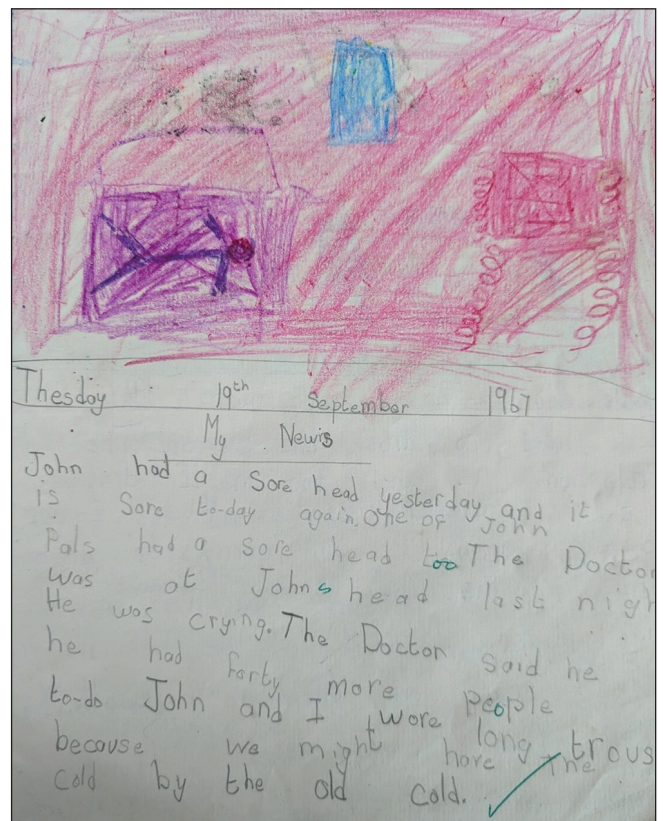 Thesday 19th September 1967
My Newis
John had a Sore head yesterday and it
is Sore to-day again. One of John
Pals had a sore head too The Doctor
was at Johns head last nigh
He was crying. The Doctor said he
he had forty more People
to-do John and I wore long trous
because we might have the
cold by the old cold.